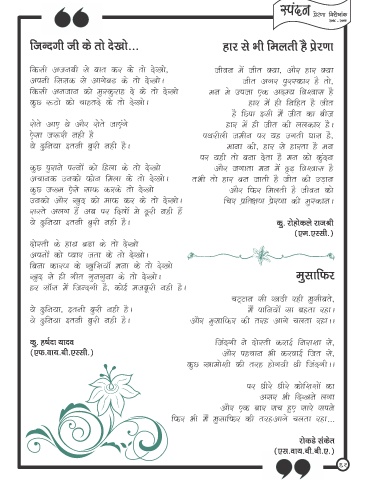 स्पंदन प्रेरणा विशेषांक
जिन्दगी जी के तो देखो...
किसी अजनबी से बात कर के तो देखो,
अपनी झिझक से आगेबढ के तो देखो।
किसी अनजान को मुस्कुराह दे के तो देखो
कुछ रूठो को चाहतई के तो देखो,
रोते आए थे और रोते जाएंगे
ऐसा जरूरी नही है
ये दुनिया इतनी बुरी नही है।
कुछ पुराने पत्तों को हिला के तो देखो
अचानक उनको फोन मिला के तो देखो।
कुछ जख्म ऐसे माफ करके तो देखो
उनको और खुद को माफ कर के तो देखो।
रास्ते अलग है अब पर दिलों मे दूरी नहीं है
ये दुनिया इतनी बुरी नही है।
दोस्ती के हाथ बढा के तो देखो
अपनों को प्यार जता के तो देखो।
बिना कारण के खुशियाँ मना के तो देखो
खुद से ही गीत गुनगुना के तो देखो।
हर साँस में जिन्दगी है, कोई मजबूरी नही है।
ये दुनिया, इतनी बुरी नही है।
ये दुनिया इतनी बुरी नही है।
कु. हर्षदा यादव
(एफ.वाय.बी.एस्सी.)
हार से भी मिलती है प्रेरणा
जीवन में जीत क्या, और हार क्या
जीत अगर पुरस्कार है तो,
मन मे उपजा एक अदम्य विश्वास है
हार में ही निहित है जीत
है छिपा इसी में जीत का बीज
हार में ही जीत को ललकार है।
पथरीली जमीन पर यह उगती घास है,
माना की, हार से हारता है मन
पर यही तो बना देता है मन को कुंदन
और जगाता मन में दृढ विश्वास है
तभी तो हार बन जाती है जीत की उडान
और फिर मिलती है जीवन को
चिर प्रतिक्षण प्रेरणा की मुस्कान।
कु. रोहोकले राजश्री
(एम.एस्सी.)
मुसाफिर
चट्टान सी खडी रही मुसीबते,
में पानियों सा बहता रहा।
और मुसाफिर की तरह आगे चलता रहा।।
जिंदगी ने दोस्ती कराई निराशा से,
और पहचान भी करवाई जित से,
कुछ खामोशी की तरह होगयी थी जिंदगी।।
पर धीरे धीरे कोशिशों का
असर भी दिखने लगा
और एक बार सच हुए सारे सपने
फिर भी मैं मुसाफिर की तरहआगे चलता रहा...
रोकडे संकेत
(एस.वाय.बी.बी.ए.)